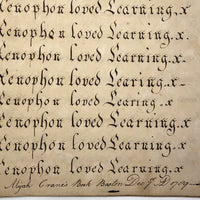 Xenophon loved Learning.x
Xenophon loved Learning.x.
Xenophon loved Learning.x.
Xenophon loved Learning.x
Xenophon loved Learing.x
Xenophon loved Learning.x
Xenophon loved Learning.x.
Xenophon loved Learning.x
Abijah Crane's Book Boston Dec